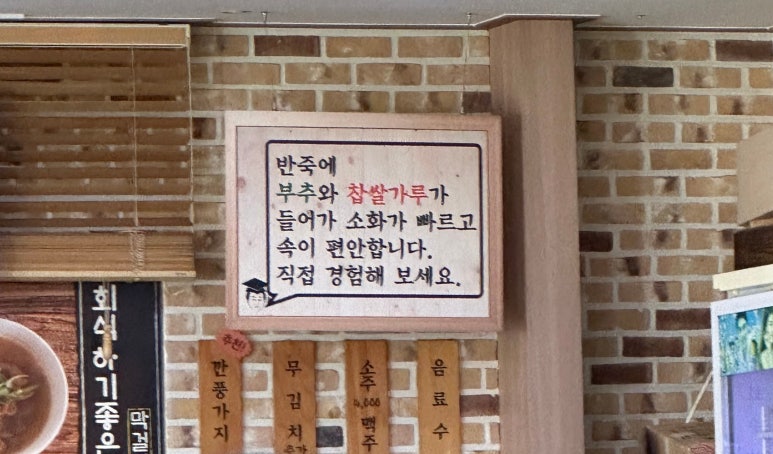 반죽에
부추와 찹쌀가루가
들어가 소화가 빠르고
속이 편안합니다.
직접 경험해 보세요.
회식하기좋은
막걸
추천!
깐풍가지
무김치
추가
소주
4,000
맥주
음료수